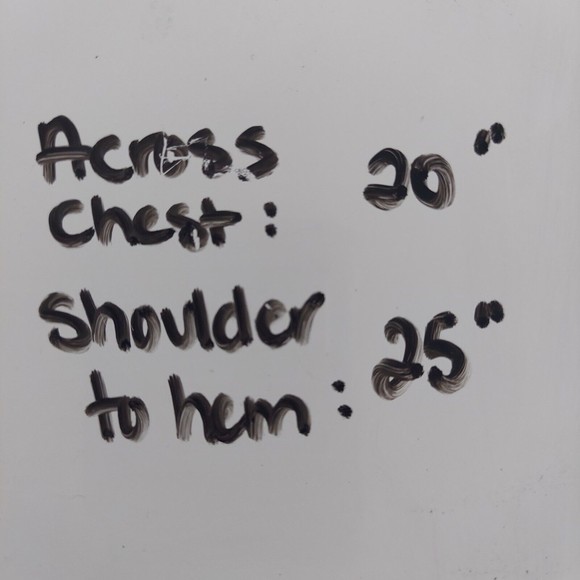 Across 20"
Chest:
Shoulder 25"
to hem: